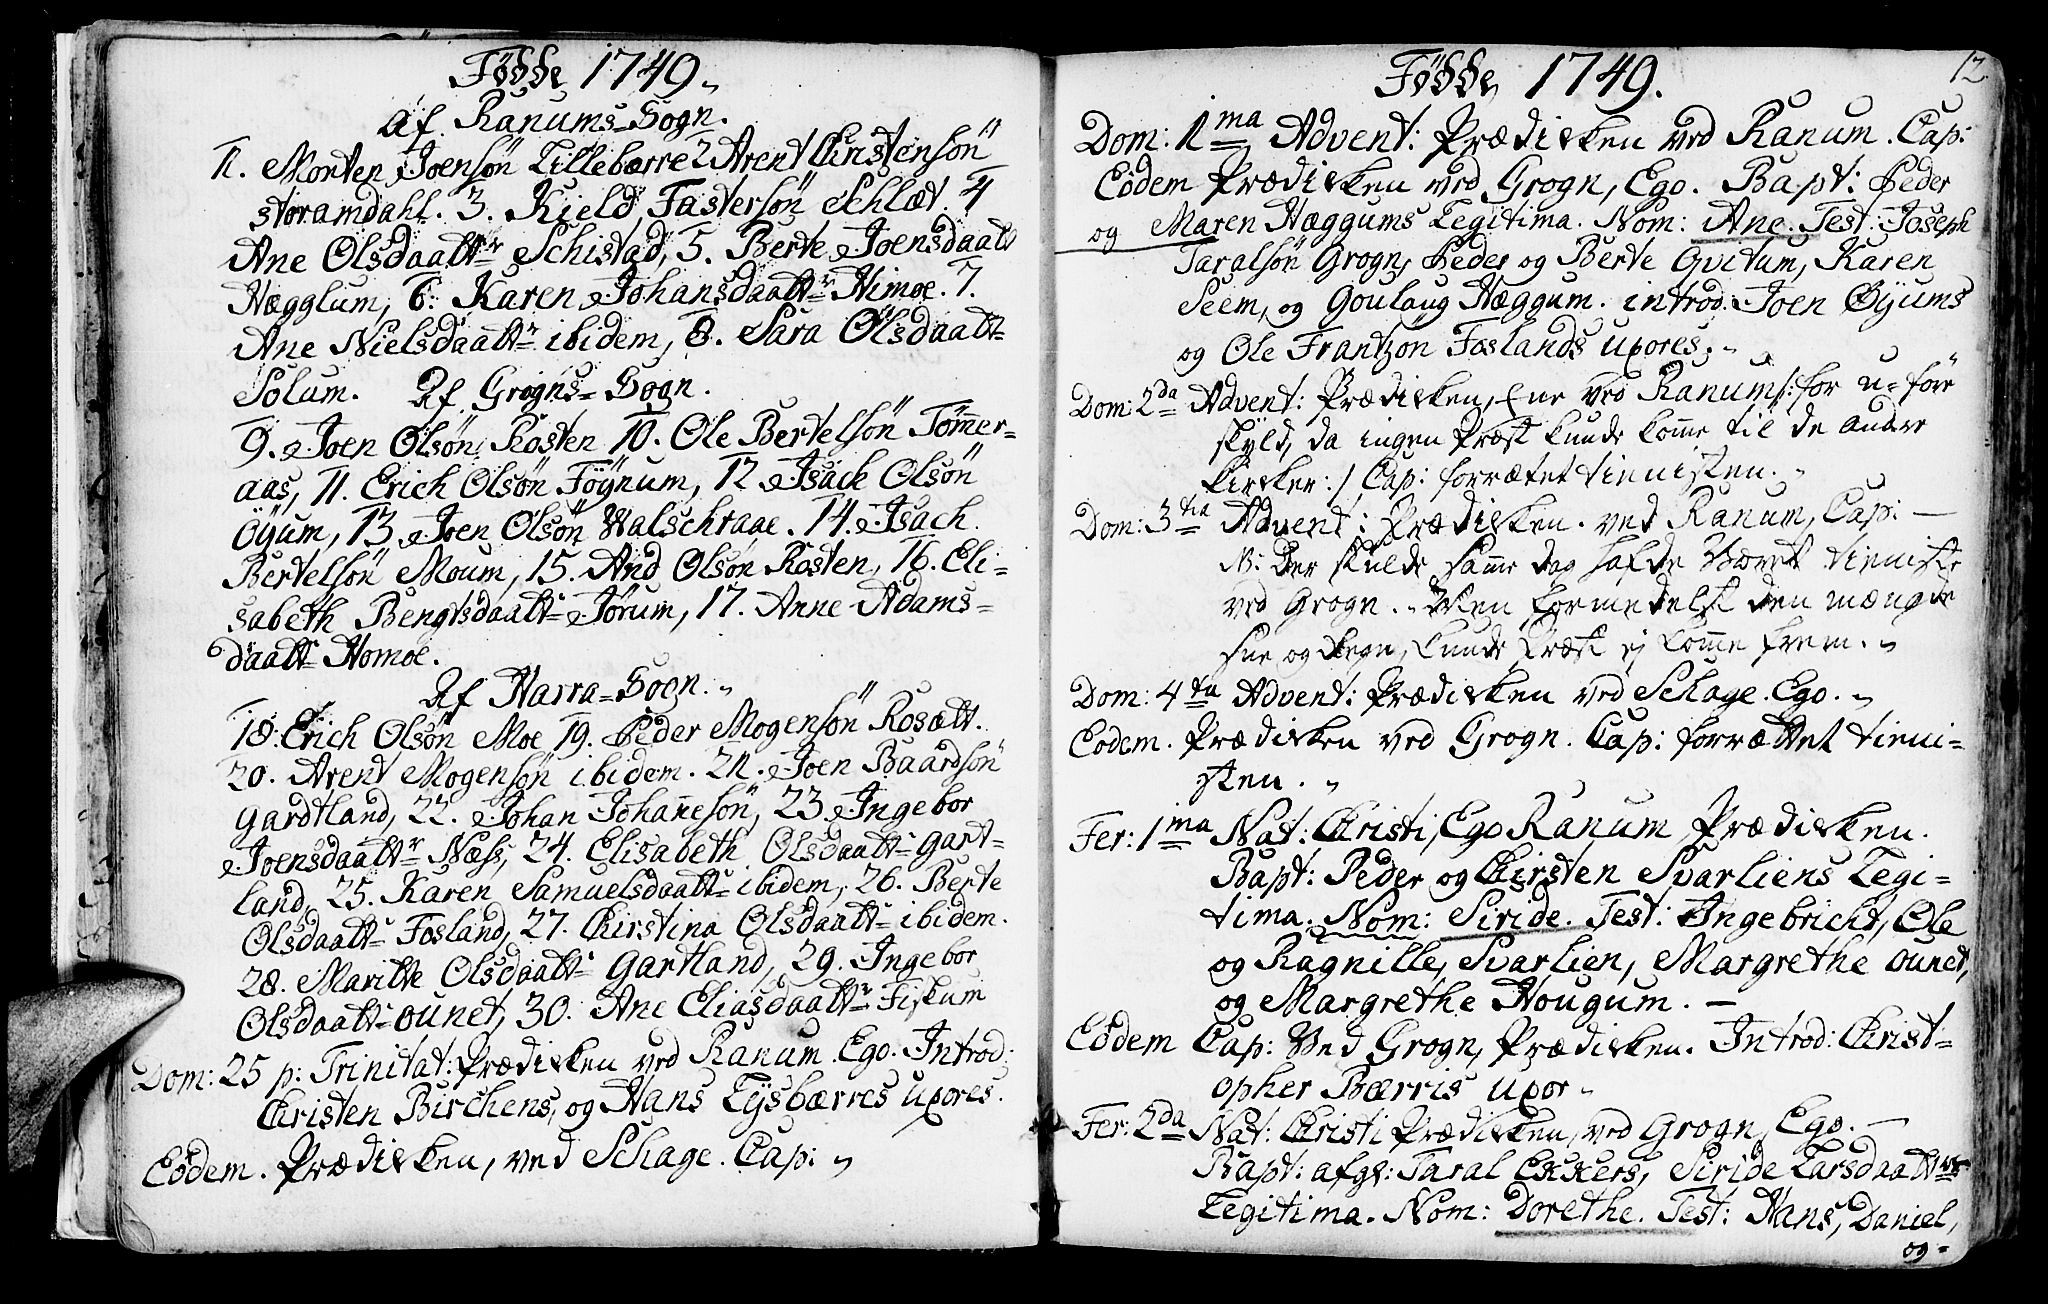 Födde 1749.
af Ranums Sogn.
1. Morten Joensön Lillebærre 2 Arent Christensön
storamdahl. 3. Kield Fastersön Schlæt. 4
Ane Olsdaattr Schistad, 5. Berte Joensdaatt
Hægglum, 6. Karen Johansdaattr Himoe. 7.
Ane Nielsdaattr ibidem, 8. Sara Olsdaatt
Solum. Af Grogns-Sogn.
9. Joen Olsön Rosten 10. Ole Bertelsön Tömer-
aas, 11. Erich Olsön Föÿnum, 12 Isach Olsön
Öÿum, 13 Joen Olsön Walschraae. 14. Isach
Bertelsön Moum, 15. And Olsön Rosten, 16. Eli-
sabeth Bengtsdaattr Jörum, 17. Anne Adams-
daattr Homoe.
Af Harra-Sogn.
18. Erich Olsön Moe 19. Peder Mogensön Rosætt.
20. Arent Mogensön ibidem. 21. Joen Baardsön
Gardtland, 22. Johan Johanesön, 23 Ingebor
Joensdaattr Næss, 24. Elisabeth Olsdaattr Gart-
land, 25. Karen Samuelsdaattr ibidem, 26. Berte
Olsdaattr Fosland, 27. Christina Olsdaattr ibidem.
28. Maritte Olsdaattr Gartland, 29. Ingebor
Olsdaattr ounet, 30. Ane Eliasdaattr Fiskum
Dom: 25 p: Trinitat: Prædicken ved Ranum. Ego. Introd:
Christen Birchens, og Hans Lÿsbærres uxores.
Eodem. Prædicken, ved Schage. Cap:
Födde 1749.
12
Dom: 1ma Advent: Prædicken ved Ranum. Cap:
Eodem Prædicken ved Grogn, Ego. Bapt: Peder
og Maren Hæggums Legitima. Nom: Ane. Test: Joseph
Taralsön Grogn, Peder og Berte Qvitum, Karen
Seem, og Goulaug Hæggum. introd. Joen Öÿums
og Ole Frantzön Foslands uxores.
Dom: 2da Advent: Prædicken, Ene ved Ranum /: for u-före
skyld, da ingen Præst kunde komme til de andre
Kircker :/ Cap: forrættet tienisten.
Dom: 3tia Advent: Prædicken. ved Ranum, Cap: —
N: Der skulde samme dag hafde Været tieniste
ved Grogn. Men formedelst den mængde
sne og Regn, kunde Præst ej komme frem.
Dom: 4ta Advent: Prædicken ved Schage. Ego.
Eodem. Prædicken ved Grogn. Cap: forrættet tieni-
sten.
Fer: 1ma Nat: Christi, Ego Ranum Prædicken.
Bapt: Peder og Chirsten Svarliens Legi-
tima. Nom: Siride. Test: Ingebricht, Ole
og Ragnille, Svarlien, Margrethe ounet,
og Margrethe Hougum. —
Eodem Cap: Ved Grogn, Prædicken. Introd: Christ-
opher Bærris uxor
Fer: 2da Nat: Christi Prædicken, ved Grogn, Ego. —
Bapt: afgl: Taral Ekkers, Siride Larsdaattr
Legitima. Nom: Dorethe. Test: Hans, Daniel,
og-